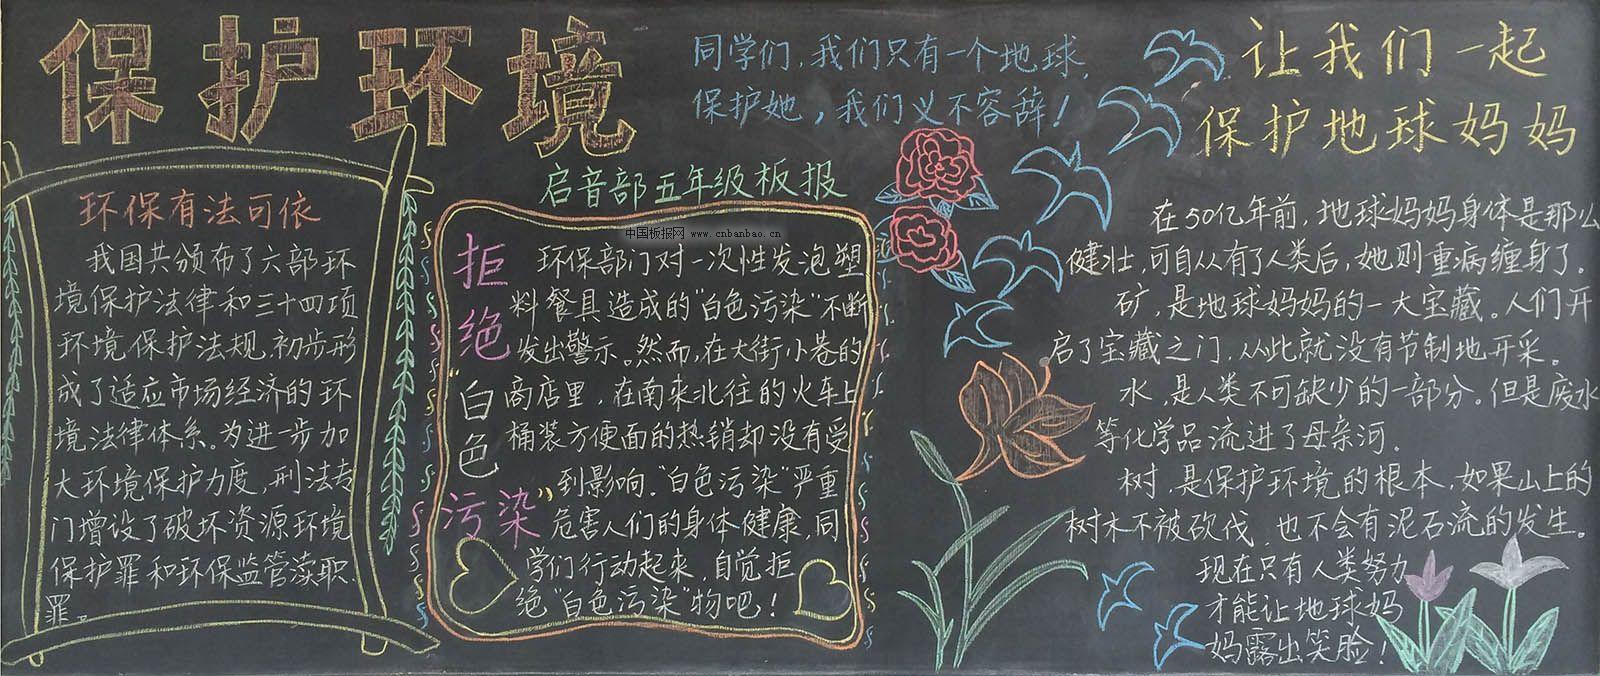 保护环境
同学们,我们只有一个地球,
保护她,我们义不容辞!
启音部五年级板报
中国板报网 www.cnbanbao.cn
环保有法可依
我国共颁布了六部环
境保护法律和三十四项
环境保护法规.初步形
成了适应市场经济的环
境法律体系。为进一步加
大环境保护力度,刑法专
门增设了破坏资源环境
保护罪和环保监管渎职
罪。
拒绝"白色污染"
环保部门对一次性发泡塑
料餐具造成的"白色污染"不断
发出警示。然而,在大街小巷的
商店里,在南来北往的火车上
桶装方便面的热销却没有受
到影响."白色污染"严重
危害人们的身体健康,同
学们行动起来,自觉拒
绝"白色污染"物吧!
让我们一起
保护地球妈妈
在50亿年前,地球妈妈身体是那么
健壮,可自从有了人类后,她则重病缠身了。
矿,是地球妈妈的一大宝藏。人们开
启了宝藏之门,从此就没有节制地开采。
水,是人类不可缺少的一部分。但是废水
等化学品流进了母亲河.
树,是保护环境的根本,如果山上的
树木不被砍伐,也不会有泥石流的发生。
现在只有人类努力
才能让地球妈
妈露出笑脸!